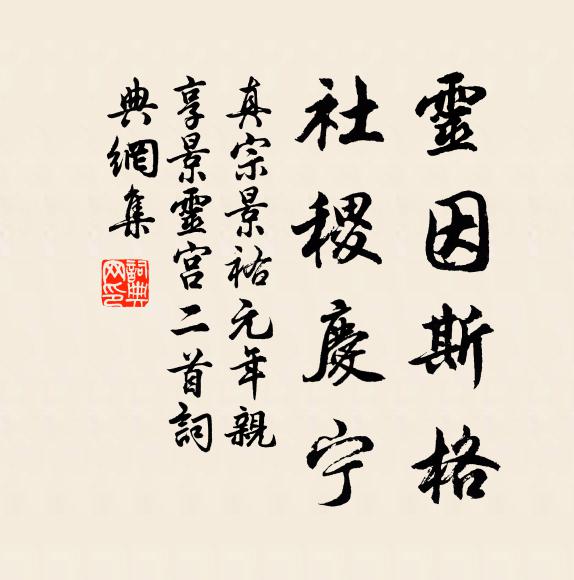 靈因斯格
社稷慶宁
真宗景祐元年親
享景靈宮二首詞
典網集
詞典网印